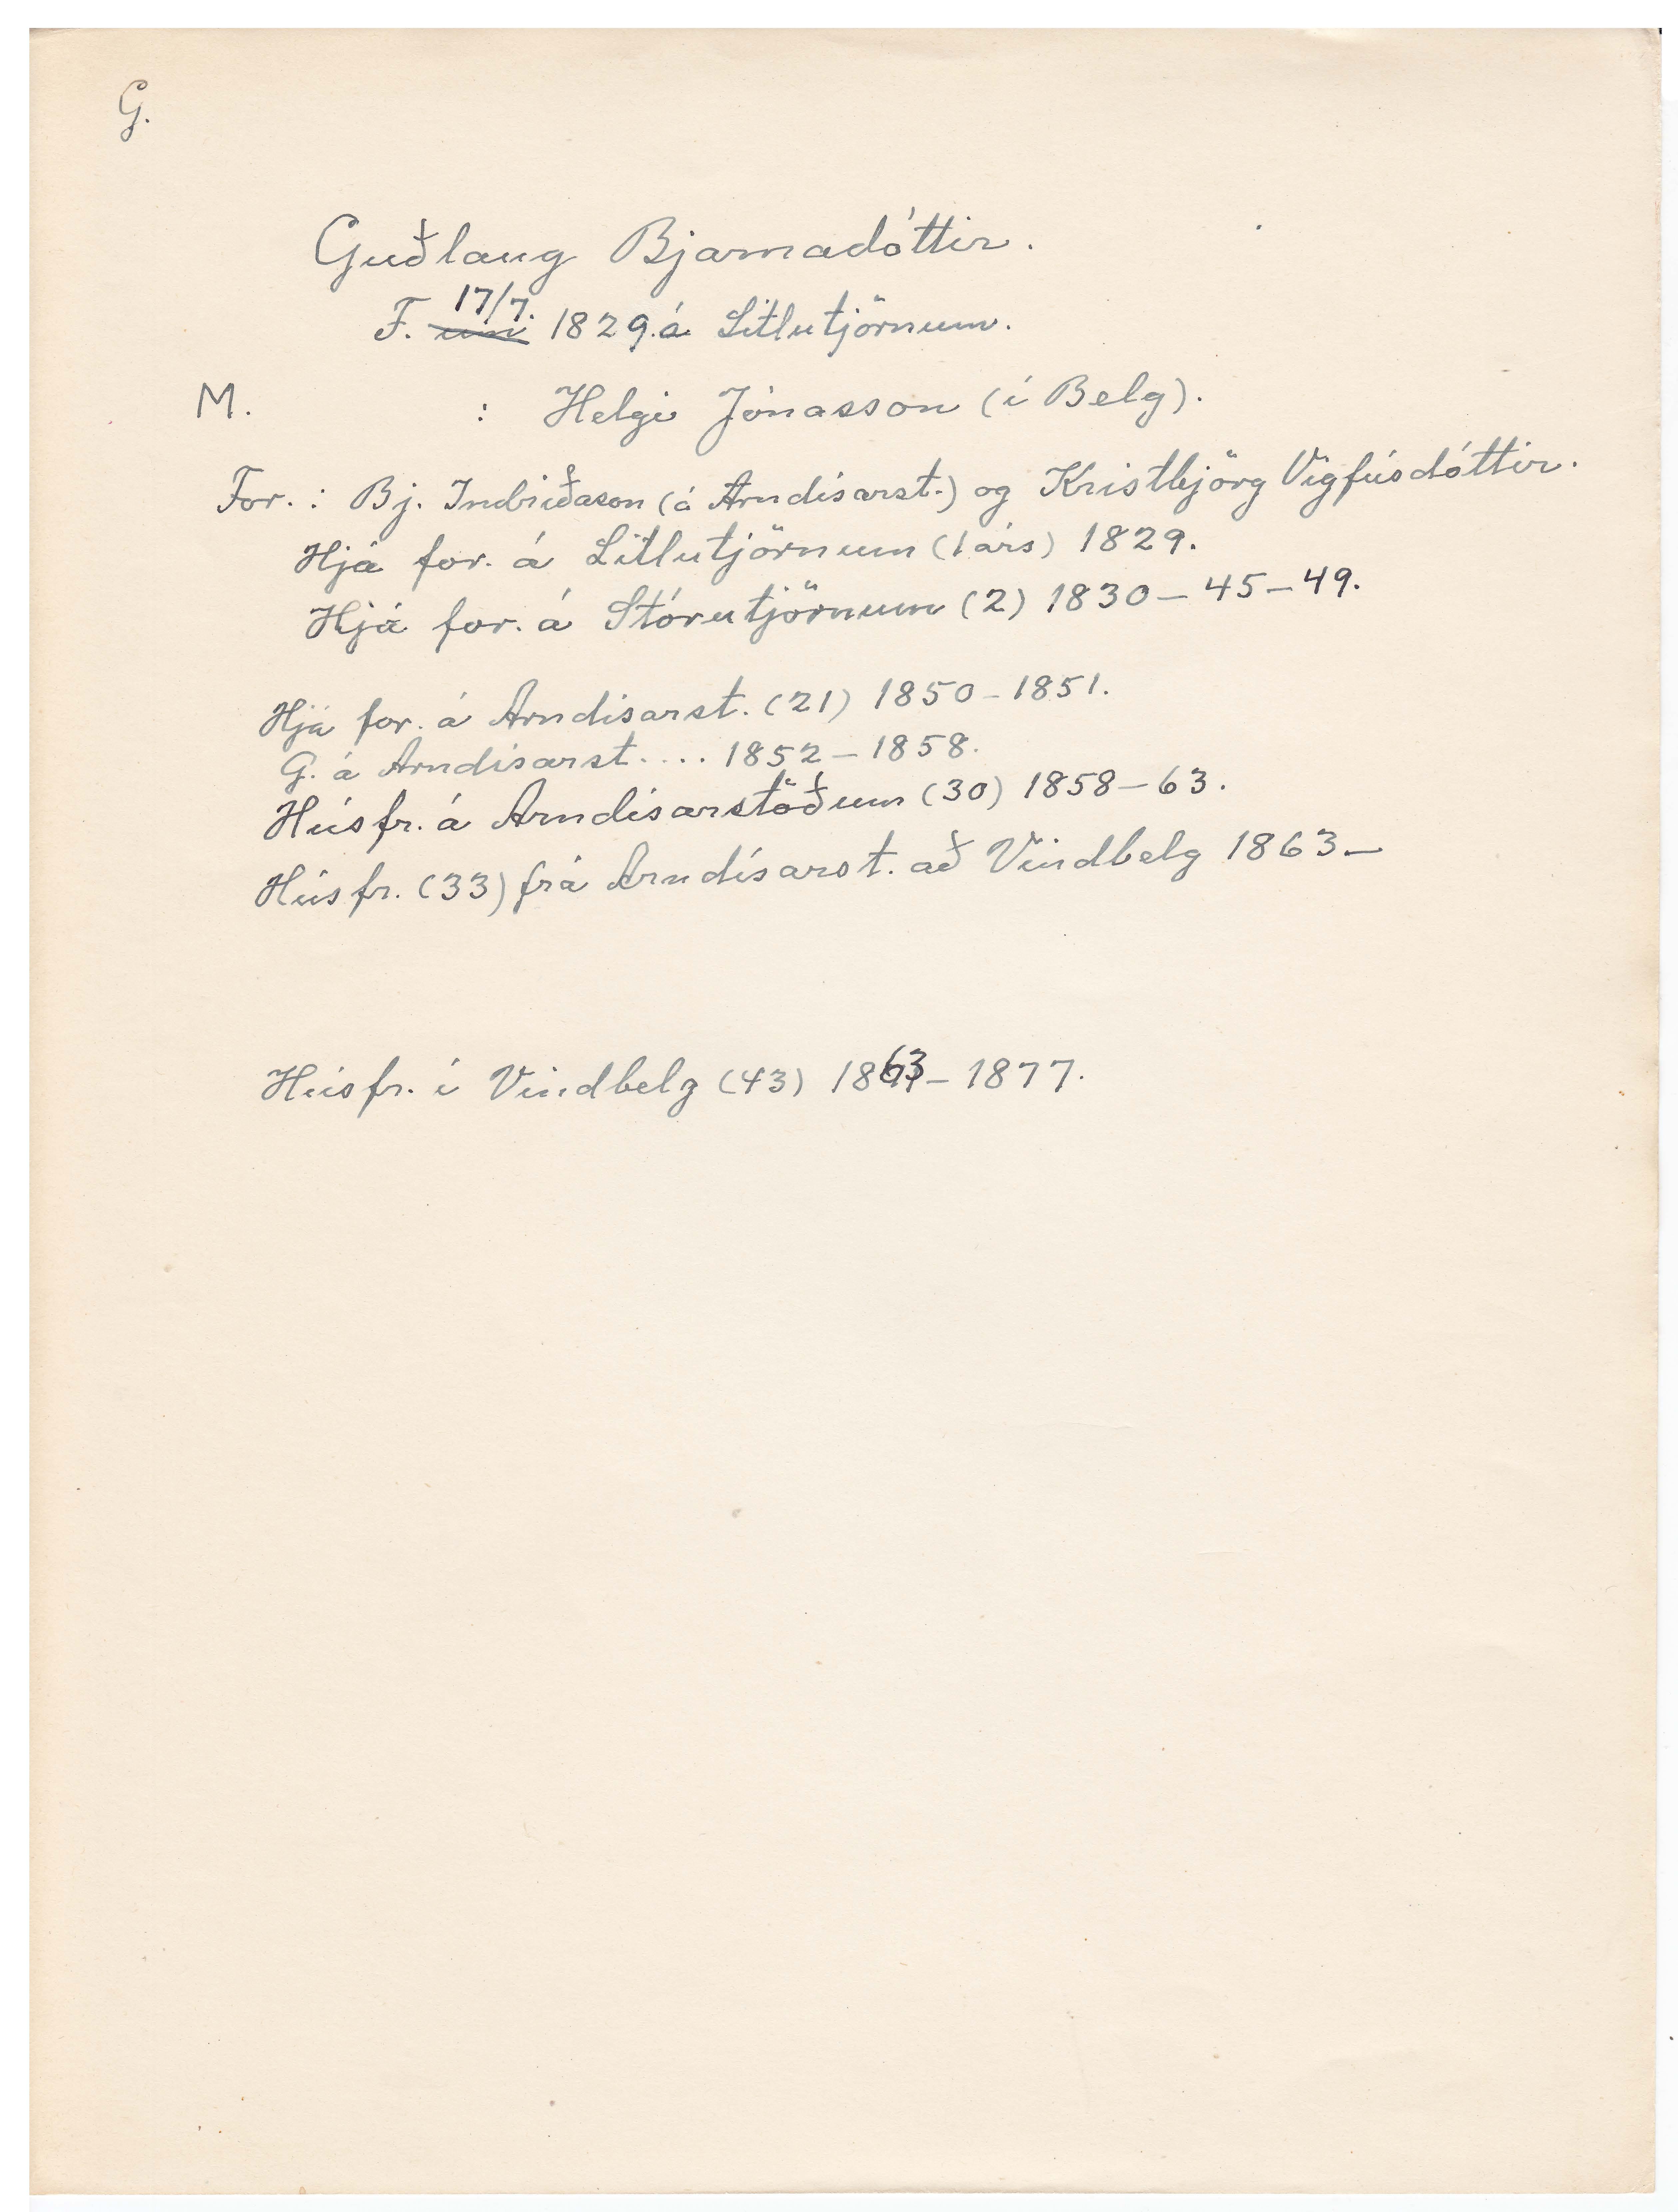 G.
Guðlaug Bjarnadóttir.
F. um 17/7. 1829. á Litlutjörnum.
M. : Helgi Jónasson (í Belg).
For. : Bj. Indriðason (á Arndísarst.) og Kristbjörg Vigfúsdóttir.
Hjá for. á Litlutjörnum (1 árs) 1829.
Hjá for. á Stórutjörnum (2) 1830 – 45 – 49.
Hjá for. á Arndísarst. (21) 1850 – 1851.
G. á Arndísarst. ... 1852 – 1858.
Húsfr. á Arndísarstöðum (30) 1858 – 63.
Húsfr. (33) frá Arndísarst. að Vindbelg 1863 –
Húsfr. í Vindbelg (43) 1863 – 1877.